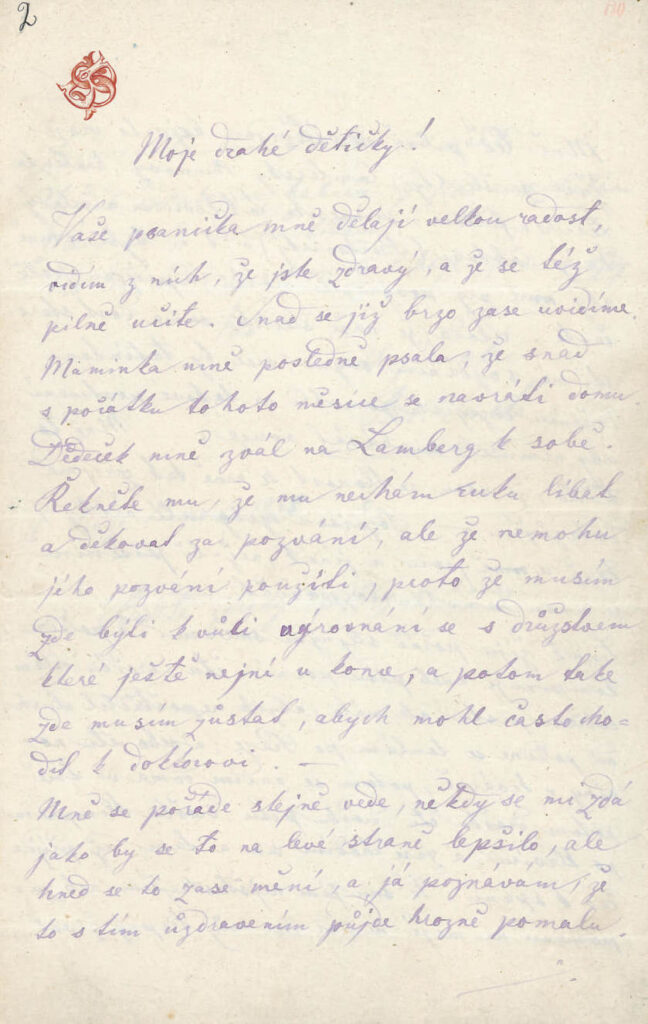 2
Moje drahé dětičky!
Vaše psanička mně dělají velkou radost,
vidím z nich, že jste zdravý, a že se též
pilně učíte. Snad se již brzo zase uvidíme.
Maminka mně posledně psala, že snad
s počátku tohoto měsíce se navrátí domu.
Dědeček mně zval na Lamberg k sobě.
Řekněte mu, že mu nechám ruku líbat
a děkovat za pozvání, ale že nemohu
jého pozvání použíti, proto že musím
zde býti k vůli vyrovnání se s družstvem
které ještě nejní u konce, a potom take
zde musím zůstat, abych mohl často cho-
dit k doktorovi. —
Mně se pořáde stejně vede, někdy se mi zdá
jako by se to na levé straně lepšilo, ale
hned se to zase mění, a já poznávám, že
to s tím uzdravením půjde hrozně pomalu.